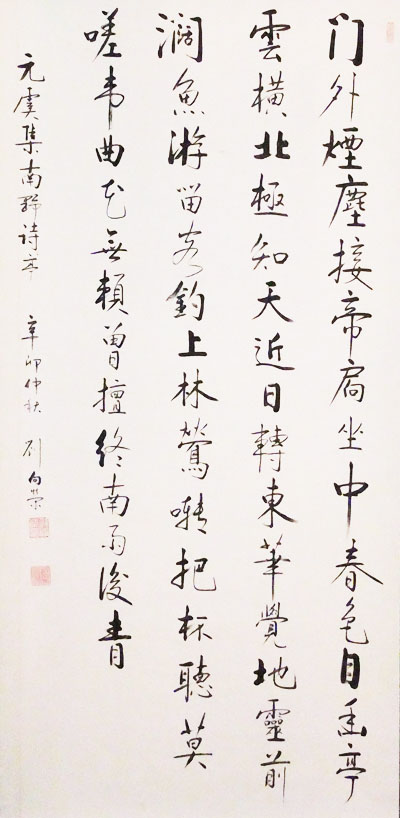 門外煙塵接帝扃坐中春色自幽亭
雲橫北極知天近日轉東華覺地靈前
澗魚游留客釣上林鶯囀把杯聽莫
嗟韋曲花無賴曾擅終南雨後青
元虞集南野詩亭 辛卯仲秋 劉向榮